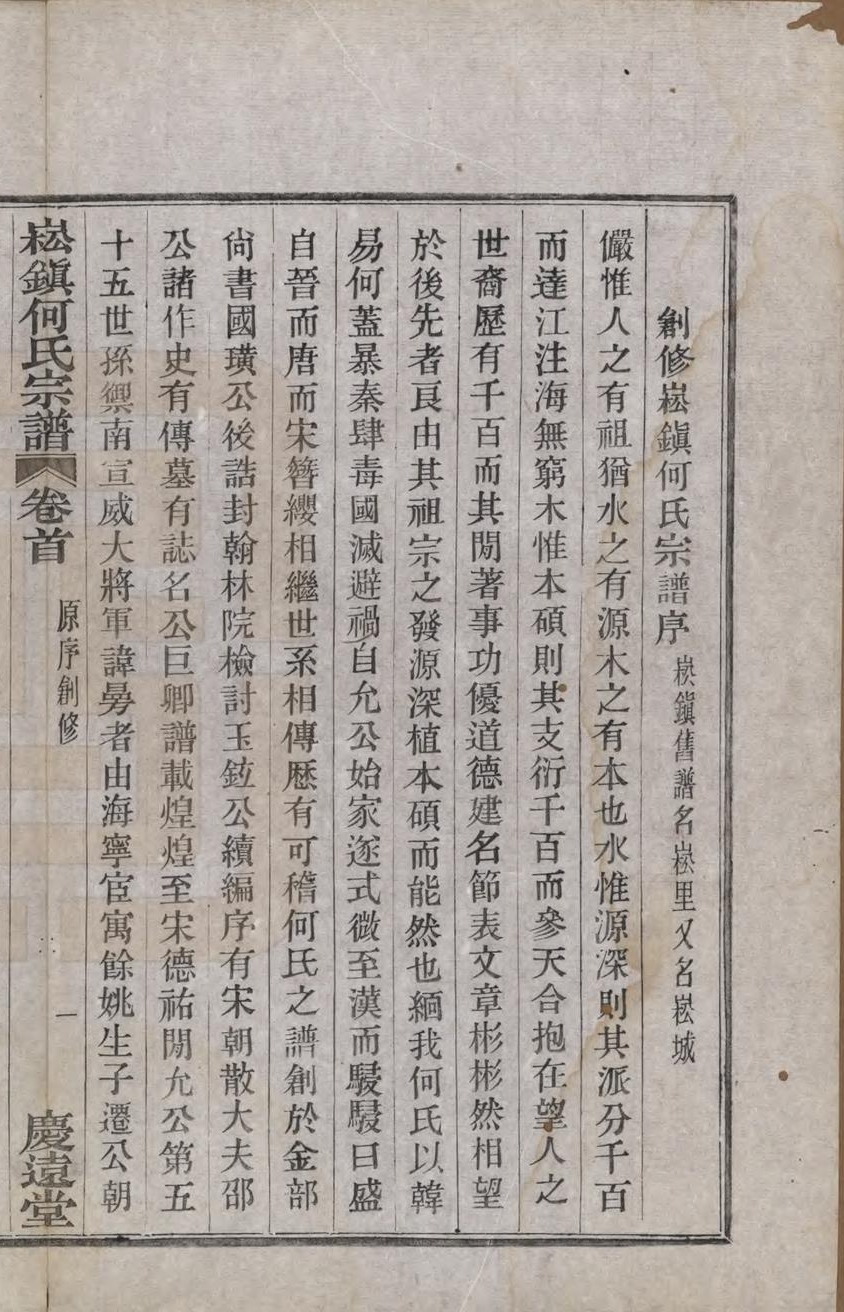 創修崧鎭何氏宗譜序 崧鎭舊譜名崧里又名崧城
儼惟人之有祖猶水之有源木之有本也水惟源深則其派分千百
而達江注海無窮木惟本碩則其支衍千百而參天合抱在望人之
世裔歷有千百而其閒著事功優道德建名節表文章彬彬然相望
於後先者良由其祖宗之發源深植本碩而能然也緬我何氏以韓
易何蓋暴秦肆毒國滅避禍自允公始家遂式微至漢而駸駸曰盛
自晉而唐而宋簪纓相繼世系相傳歷有可稽何氏之譜創於金部
尙書國璜公後誥封翰林院檢討玉鉝公續編序有宋朝散大夫邵
公諸作史有傳墓有誌名公巨卿譜載煌煌至宋德祐閒允公第五
十五世孫禦南宣威大將軍諱昮者由海寧宦寓餘姚生子遷公朝
崧鎭何氏宗譜 卷首 原序創修 一 慶遠堂